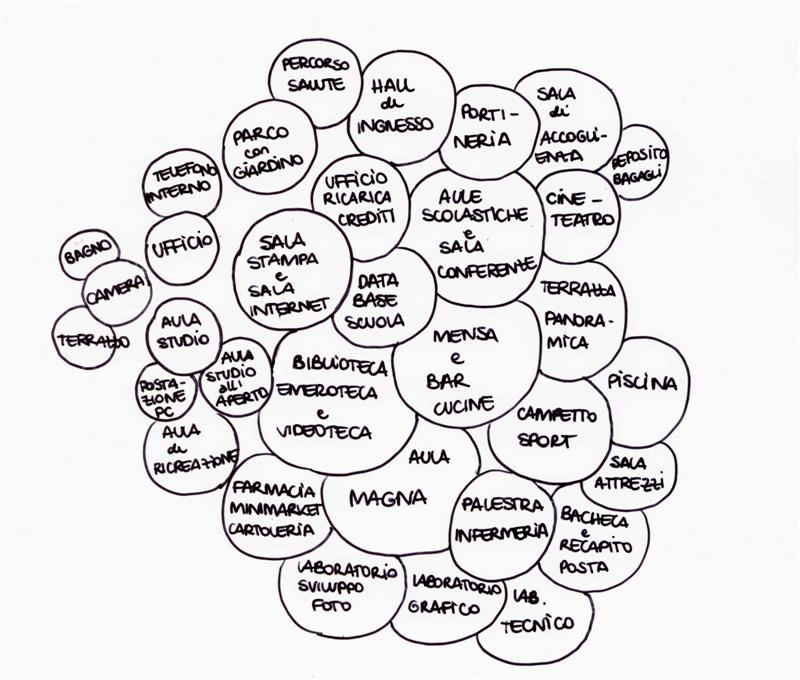 PERCORSO
SALUTE
HALL
di
INGRESSO
PORTI-
NERIA
SALA
di
ACCOGLI-
ENZA
DEPOSITO
BAGAGLI
PARCO
con
GIARDINO
TELEFONO
INTERNO
UFFICIO
RICARICA
CREDITI
AULE
SCOLASTICHE
e
SALA
CONFERENZE
CINE-
TEATRO
BAGNO
CAMERA
TERRAZZO
UFFICIO
SALA
STAMPA
e
SALA
INTERNET
DATA
BASE
SCUOLA
TERRAZZA
PANORA-
MICA
AULA
STUDIO
AULA
STUDIO
all'
APERTO
POSTA-
ZIONE
PC
AULA
di
RICREAZIONE
BIBLIOTECA
EMEROTECA
e
VIDEOTECA
MENSA
e
BAR
CUCINE
CAMPETTO
SPORT
PISCINA
SALA
ATTREZZI
FARMACIA
MINIMARKET
CARTOLERIA
AULA
MAGNA
PALESTRA
INFERMERIA
BACHECA
e
RECAPITO
POSTA
LABORATORIO
SVILUPPO
FOTO
LABORATORIO
GRAFICO
LAB.
TECNICO